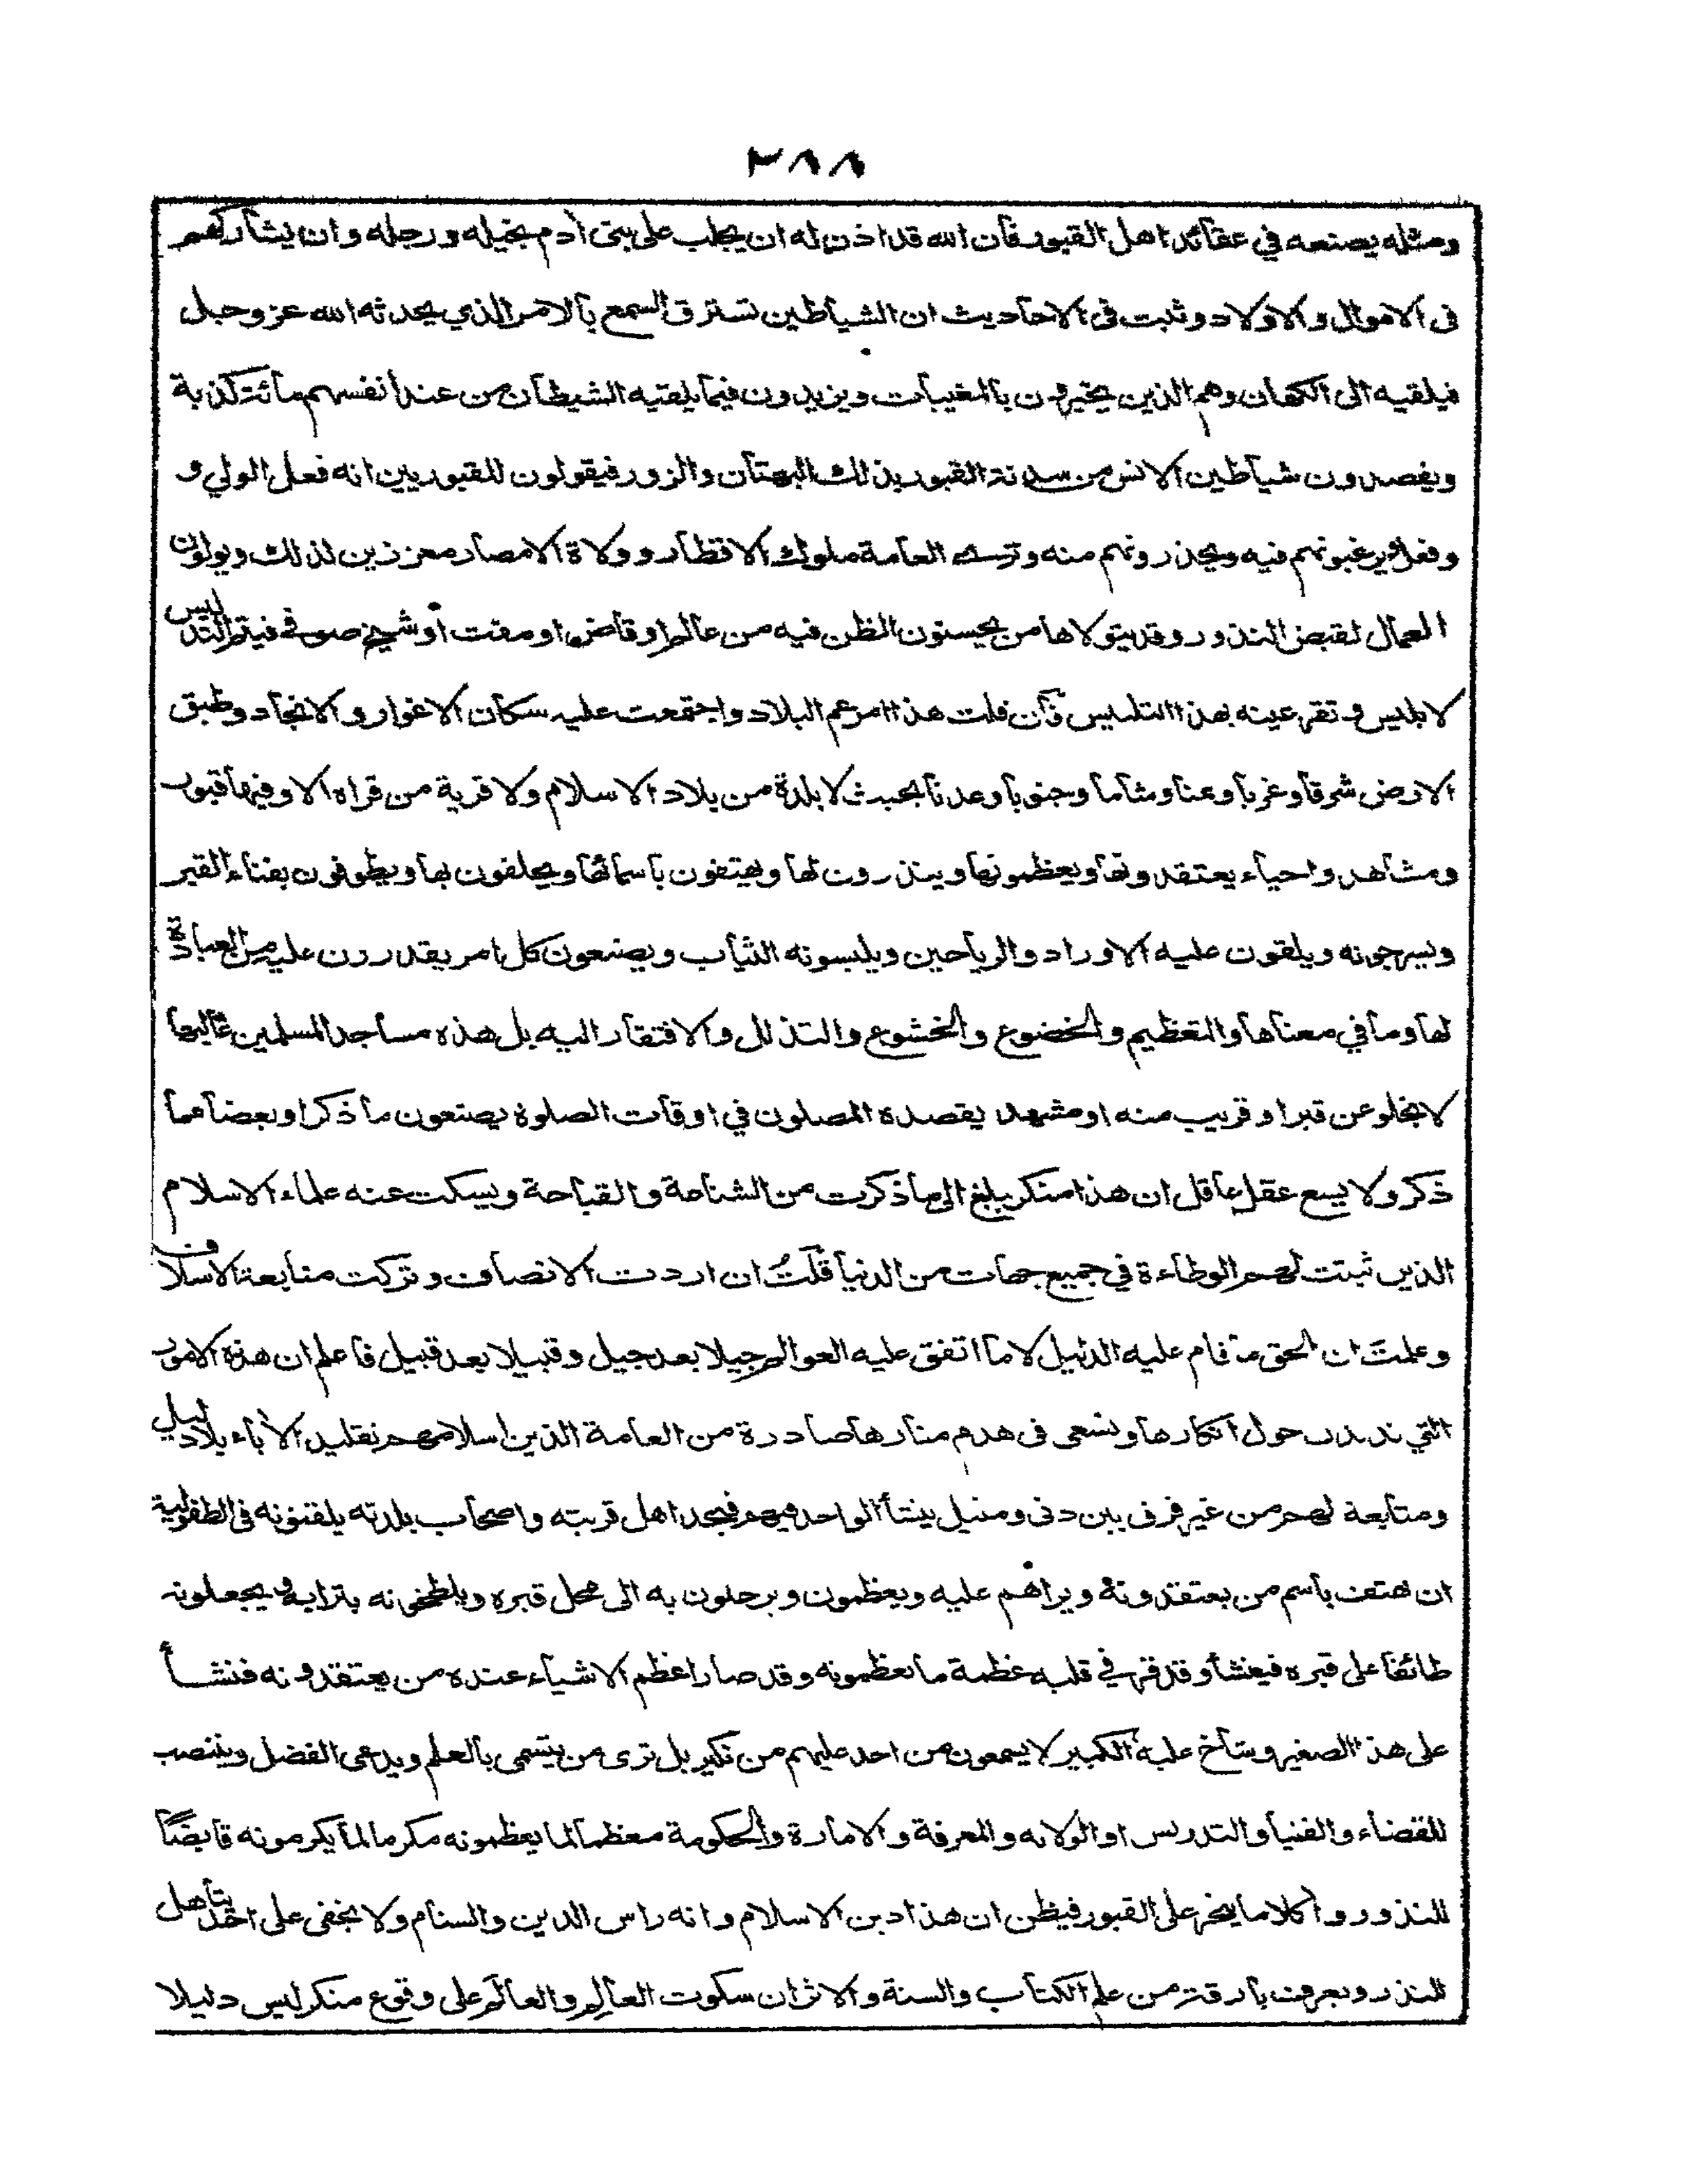 ٢٨٨
ومثله يصنعه في عقائد اهل القبور فان الله قد اذن له ان يجلب على بنى أدم بخيله ورجله وان يشاركهم
فى الاموال والاولاد وثبت فى الاحاديث ان الشياطين تسترق السمع بالامر الذي يحدثه الله عز وجل
فيلقيه الى الكهان وهم الذين يخبرون بالمغيبات ويزيدون فيما يلقيه الشيطان من عند أنفسهم مائة كذبة
ويقصدون شياطين الانس من سدنة القبور بذلك البهتان والزور فيقولون للقبوريين انه فعل الولي و
وفعل يرغبونهم فيه ويحذرونهم منه وترى العامة ملوك الاقطار وولاة الامصار معززين لذلك ويولون
العمال لقبض النذور وقد يتولاها من يحسنون الظن فيه من عالم او قاض او مفت او شيخ صوفى فيتم التدليس
لابليس وتقر عينه بهذا التلبيس فان قلت هذا امر عم البلاد واجتمعت عليه سكان الاغوار والانجاد وطبق
الارض شرقا وغربا وعنا ومثاما وجنوبا وعدنا بحيث لا بلدة من بلاد الاسلام ولا قرية من قراه الا وفيها قبور
ومشاهد واحياء يعتقدونها ويعظمونها وينذرون لها ويهتفون باسمائها ويحلفون بها ويطوفون بفناء القبر
ويسرجونه ويلقون عليه الاوراد والرياحين ويلبسونه الثياب ويصنعون كل امر يقدرون عليه من العبادة
لها وما في معناها والتعظيم والخضوع والخشوع والتذلل والافتقار اليه بل هذه مساجد المسلمين غالبها
لا يخلو عن قبر او قريب منه او مشهد يقصده المصلون في اوقات الصلوة يصنعون ما ذكر او بعضا مما
ذكر ولا يسع عقل عاقل ان هذا منكر يبلغ الى ما ذكرت من الشناعة والقباحة ويسكت عنه علماء الاسلام
الذين ثبتت لهم الوطاءة في جميع جهات من الدنيا قلتُ ان اردت الانصاف وتركت متابعة الاسلاف
وعلمتَ ان الحق ما قام عليه الدليل لا ما اتفق عليه العوالم جيلا بعد جيل وقبيلا بعد قبيل فاعلم ان هذه الامور
التي ندندن حول انكارها ونسعى فى هدم منارها صادرة من العامة الذين اسلامهم تقليد الأباء بلا دليل
ومتابعة لهم من غير فرق بين دنى ومثيل ينشأ الواحد فيهم فيجد اهل قريته واصحاب بلدته يلقنونه فى الطفولية
ان يهتف باسم من يعتقدونه ويراهم عليه ويعظمون ويرحلون به الى محل قبره ويلطخونه بترابه ويجعلونه
طائفا على قبره فينشأ وقد قر في قلبه عظمة ما يعظمونه وقد صار اعظم الاشياء عنده من يعتقدونه فنشأ
على هذا الصغير وشاخ عليه الكبير لا يسمعون من احد عليهم من نكير بل ترى من يتسمى بالعلم ويدعى الفضل وينتصب
للقضاء والفتيا والتدريس او الولاية والمعرفة والامارة والحكومة معظما لما يعظمونه مكرما لما يكرمونه قابضًا
للنذور واكلا ما ينحر على القبور فيظن ان هذا دين الاسلام وانه راس الدين والسنام ولا يخفى على احد يتأهل
للنذر ويعرف بارقة من علم الكتاب والسنة والاثر ان سكوت العالم والعالم على وقوع منكر ليس دليلا